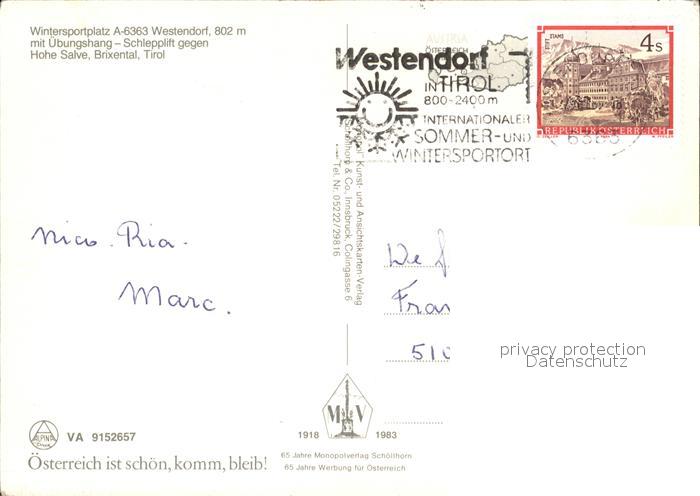 Wintersportplatz A-6363 Westendorf, 802 m
mit Übungshang – Schlepplift gegen
Hohe Salve, Brixental, Tirol
AUSTRIA
ÖSTERREICH
Westendorf
IN TIROL
800-2400 m
INTERNATIONALER
SOMMER- UND
WINTERSPORTORT
STAMS
4 S
REPUBLIK ÖSTERREICH
6363
Kunst- und Ansichtskarten-Verlag
Schöllhorn & Co., Innsbruck, Colingasse 6
Tel. Nr. 05222/29816
Nico. Ria.
Marc.
We
Fra
510
privacy protection
Datenschutz
ALPINA
Druck
VA 9152657
Österreich ist schön, komm, bleib!
M V
1918 1983
65 Jahre Monopolverlag Schöllhorn
65 Jahre Werbung für Österreich